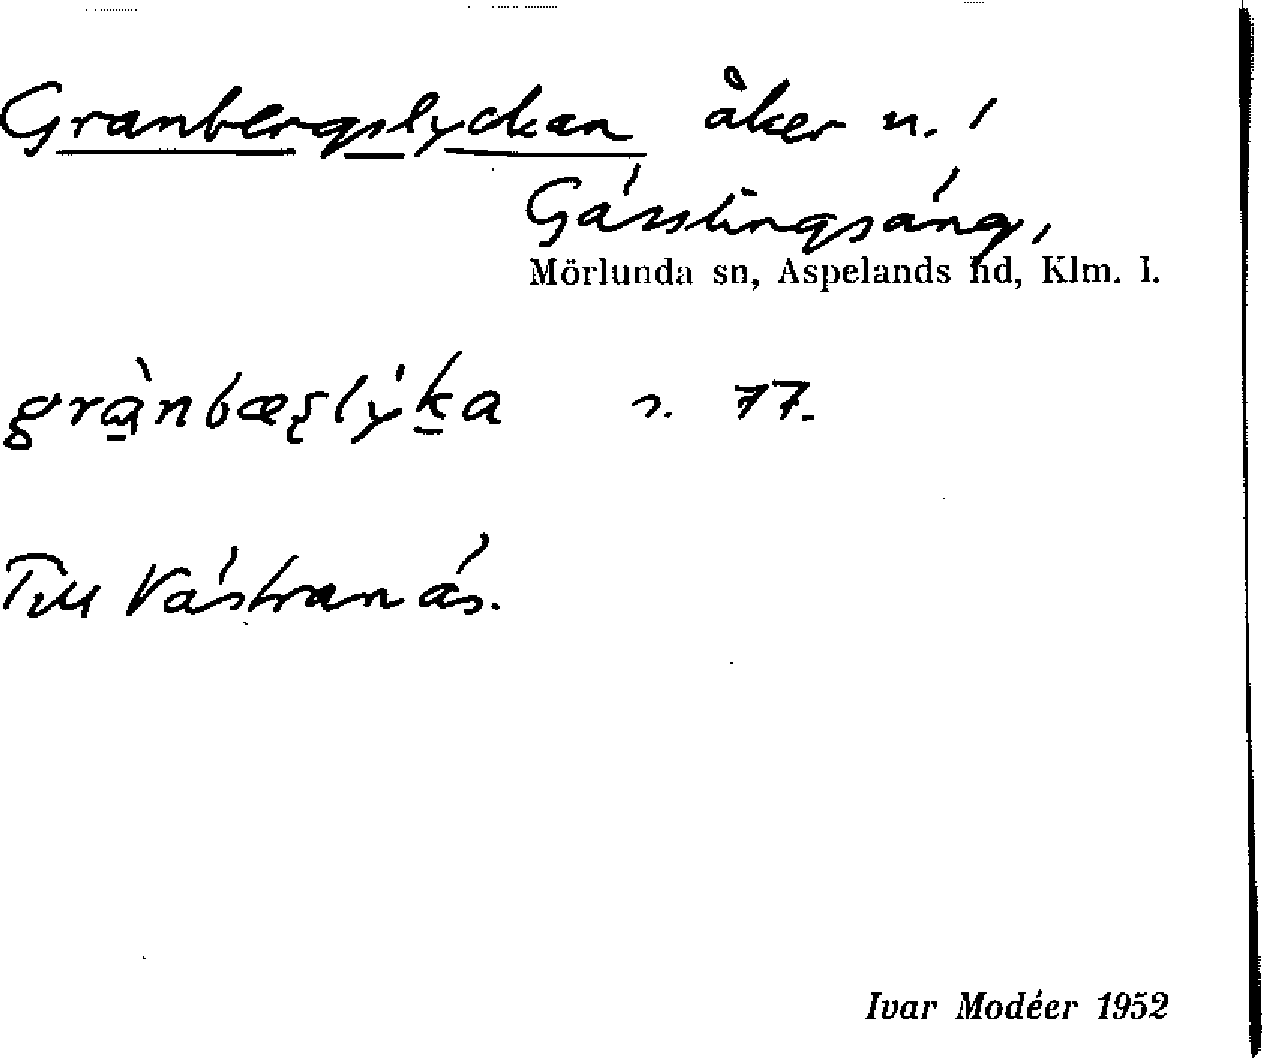 Granbergslyckan åker n. i
Gässlingsäng,
Mörlunda sn, Aspelands hd, Klm. l.
grànbæʂlýka s. 77.
Till Västranäs.
Ivar Modéer 1952